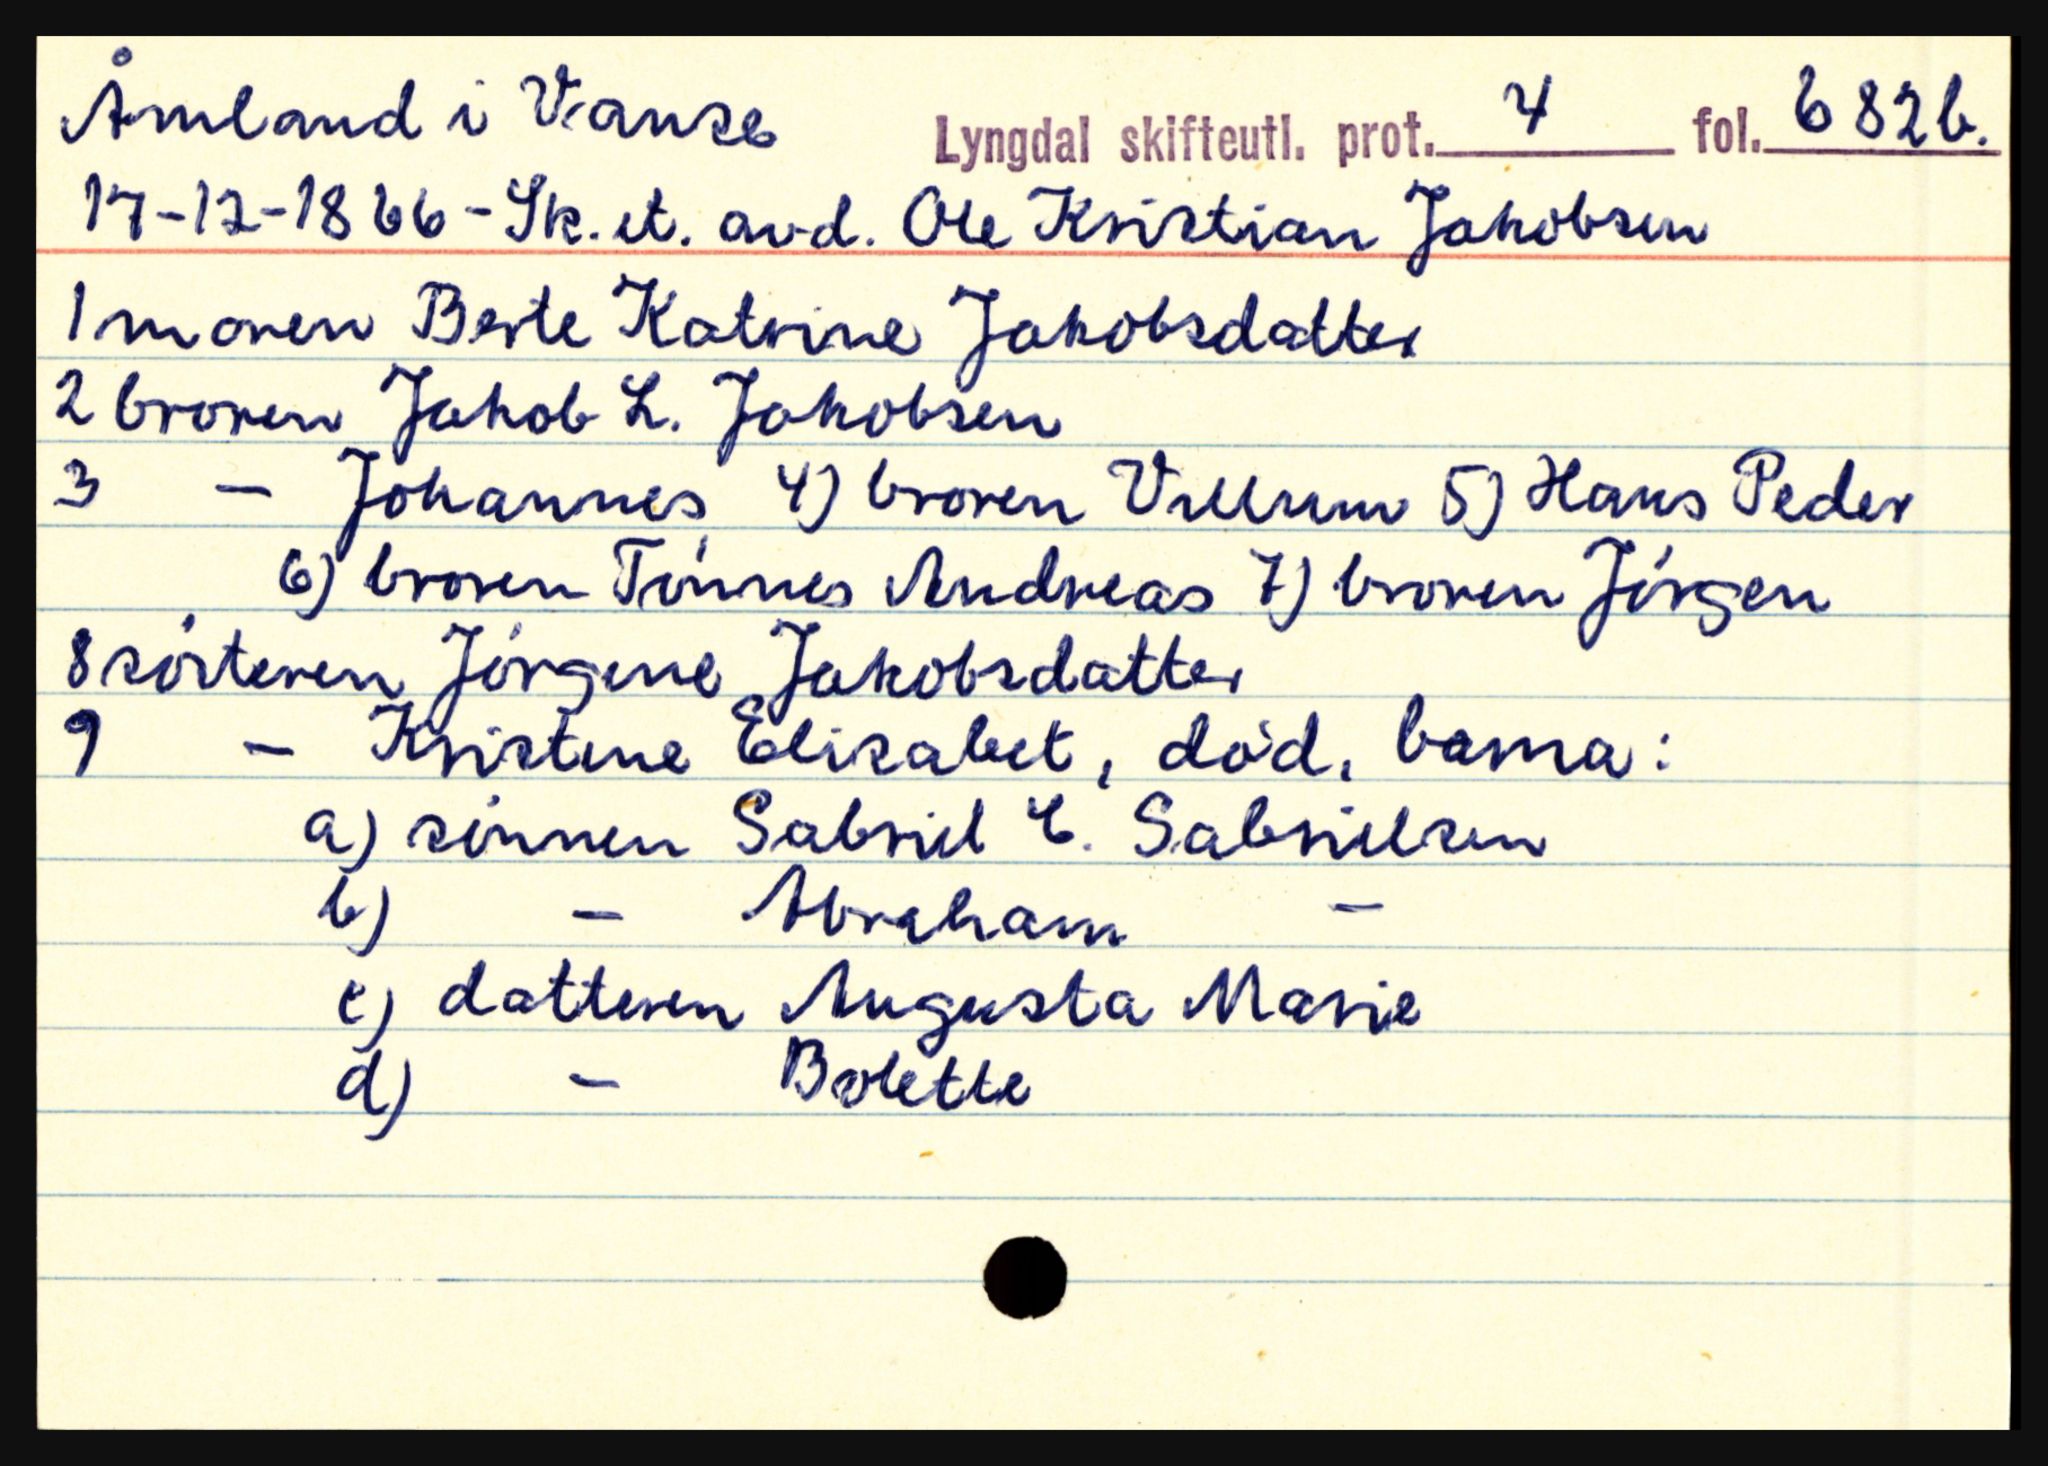 Åmland i Vanse Lyngdal skifteutl. prot. 4 fol. 682b.
17-12-1866 - Sk. et. avd. Ole Kristian Jakobsen
1 moren Berte Katrine Jakobsdatter
2 broren Jakob L. Jakobsen
3 - Johannes, 4) broren Villum 5) Hans Peder
6) broren Tönnes Andreas 7) broren Jörgen
8 sösteren Jörgine Jakobsdatter
9 - Kristine Elisabet, död, barna:
a) sönnen Gabriel C. Gabrielsen
b) - Abraham -
c) datteren Augusta Marie
d) - Bolette